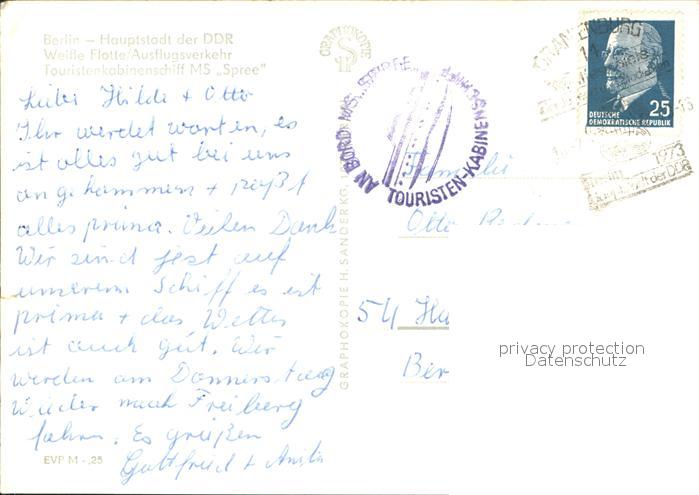 Berlin – Hauptstadt der DDR
Weiße Flotte/Ausflugsverkehr
Touristenkabinenschiff MS „Spree"
Liebe Hilde + Otto
Ihr werdet warten, es
ist alles gut bei uns
angekommen + paßt
alles prima. Vielen Dank
Wir sind jest auf
unserem Schiff es ist
prima + das Wetter
ist auch gut. Wir
werden am Donnerstag
wieder nach Freiberg
fahren. Es grüßen
Gottfried + Anita
EVP M -,25
GRAPHOKOPIE
GRAPHOKOPIE H. SANDER KG,
AN BORD MS „SPREE"
TOURISTEN-KABINENSCHIFF
ORANIENBURG
14
1973
DEUTSCHE
DEMOKRATISCHE REPUBLIK
25
Familie
Otto
54 Ha
Ber
privacy protection
Datenschutz